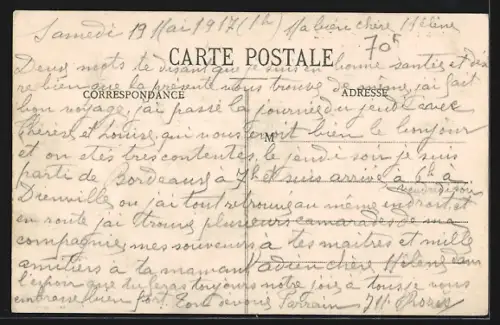 Samedi 19 Mai 1917 (1h) Ma bien chère Hélène
70c
CARTE POSTALE
Deux mots te disant que je suis en bonne santé et dis
re bien que la présente vous trouve de même, j'ai fait
CORRESPONDANCE ADRESSE
bon voyage, j'ai passé la journée du jeudi avec
Thérèse et Louise, qui vous envoient bien le bonjour
M
et on était très contentes, le jeudi soir je suis
parti de Bordeaux à 7h et suis arrivé à 6h a
vendredi soir
Dienville ou j'ai tout retrouvé au même endroit et
en route j'ai trouvé plusieurs camarades de ma
compagnie, mes souvenirs a tes maitres et mille
amitiers à ta maman adieu chère Hélène dans
l'espoir que tu feras toujours notre joie a tous je vous
embrasse bien fort Tout devoué Parrain